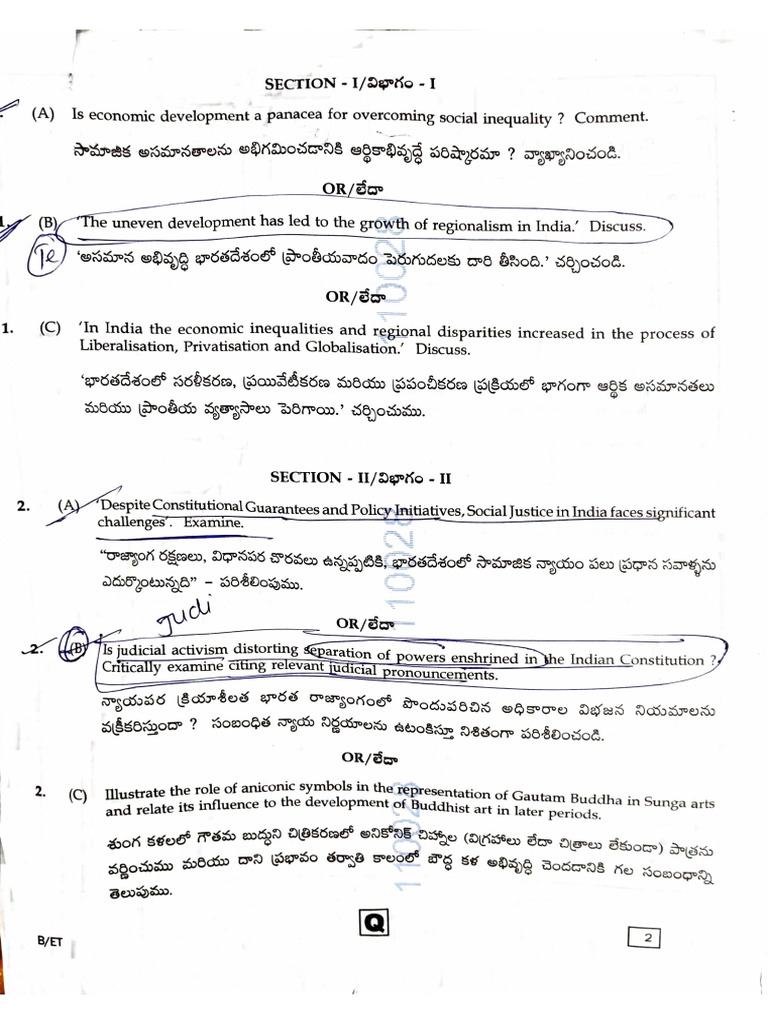 SECTION - I/విభాగం - I
(A) Is economic development a panacea for overcoming social inequality ? Comment.
సామాజిక అసమానతాలను అభిగమించడానికి ఆర్థికాభివృద్ధే పరిష్కారమా ? వ్యాఖ్యానించండి.
OR/లేదా
1. (B) 'The uneven development has led to the growth of regionalism in India.' Discuss.
'అసమాన అభివృద్ధి భారతదేశంలో ప్రాంతీయవాదం పెరుగుదలకు దారి తీసింది.' చర్చించండి.
OR/లేదా
1. (C) 'In India the economic inequalities and regional disparities increased in the process of
Liberalisation, Privatisation and Globalisation.' Discuss.
'భారతదేశంలో సరళీకరణ, ప్రయివేటీకరణ మరియు ప్రపంచీకరణ ప్రక్రియలో భాగంగా ఆర్థిక అసమానతలు
మరియు ప్రాంతీయ వ్యత్యాసాలు పెరిగాయి.' చర్చించుము.
SECTION - II/విభాగం - II
2. (A) 'Despite Constitutional Guarantees and Policy Initiatives, Social Justice in India faces significant
challenges'. Examine.
"రాజ్యాంగ రక్షణలు, విధానపర చొరవలు ఉన్నప్పటికి, భారతదేశంలో సామాజిక న్యాయం పలు ప్రధాన సవాళ్ళను
ఎదుర్కొంటున్నది" – పరిశీలింపుము.
judi
OR/లేదా
2. (B) Is judicial activism distorting separation of powers enshrined in the Indian Constitution ?
Critically examine citing relevant judicial pronouncements.
న్యాయపర క్రియాశీలత భారత రాజ్యాంగంలో పొందుపరిచిన అధికారాల విభజన నియమాలను
వక్రీకరిస్తుందా ? సంబంధిత న్యాయ నిర్ణయాలను ఉటంకిస్తూ నిశితంగా పరిశీలించండి.
OR/లేదా
2. (C) Illustrate the role of aniconic symbols in the representation of Gautam Buddha in Sunga arts
and relate its influence to the development of Buddhist art in later periods.
శుంగ కళలలో గౌతమ బుద్ధుని చిత్రికరణలో అనికోనిక్ చిహ్నాల (విగ్రహాలు లేదా చిత్రాలు లేకుండా) పాత్రను
వర్ణించుము మరియు దాని ప్రభావం తర్వాతి కాలంలో బౌద్ధ కళ అభివృద్ధి చెందడానికి గల సంబంధాన్ని
తెలుపుము.
110028
110028
110028
B/ET
Q
2